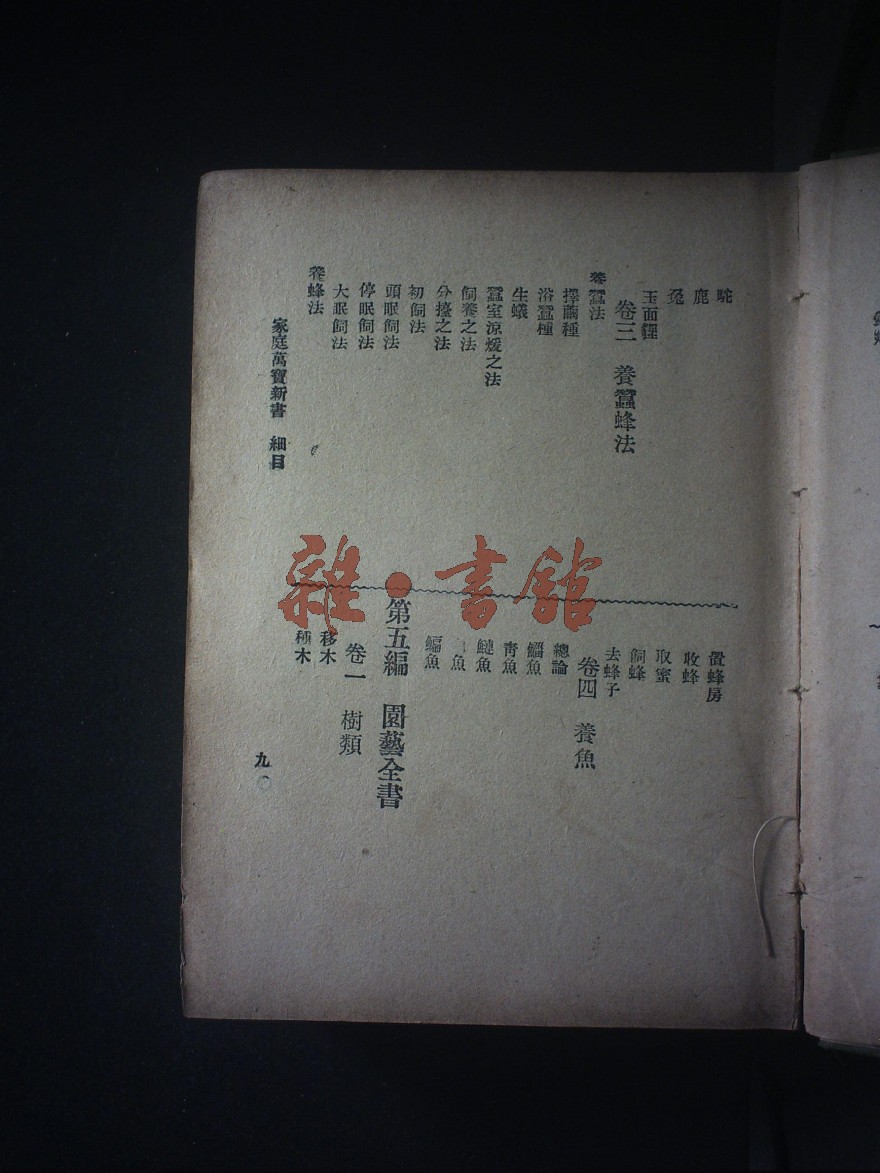 駝
鹿
兔
玉面貍
卷三　養蠶蜂法
養蠶法
擇繭種
浴蠶種
生蟻
蠶室涼煖之法
飼養之法
分擡之法
初飼法
頭眠飼法
停眠飼法
大眠飼法
養蜂法
置蜂房
收蜂
取蜜
飼蜂
去蜂子
卷四　養魚
總論
鯔魚
青魚
鰱魚
魚
鯿魚
第五編　園藝全書
卷一　樹類
移木
種木
家庭萬寶新書　細目
九
雜·書館